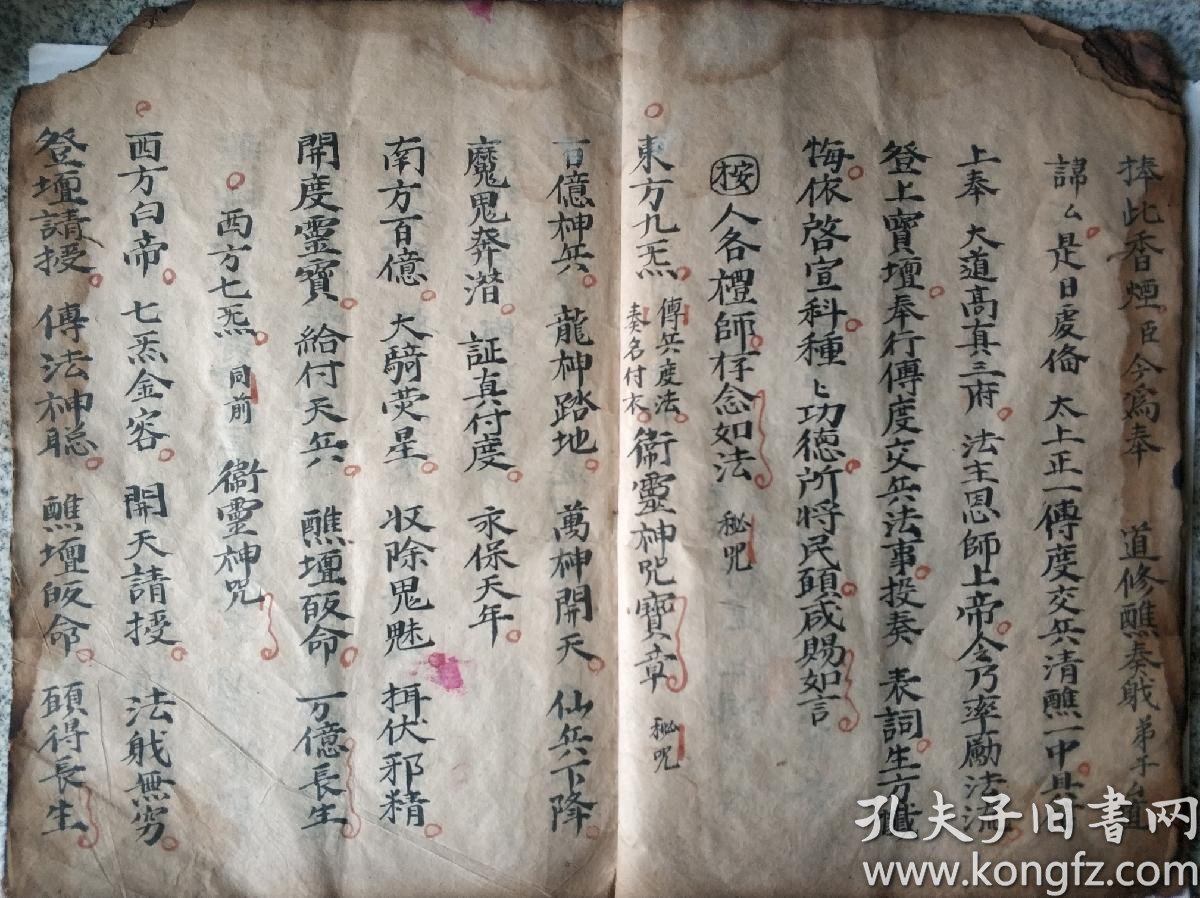 捧此香煙臣今為奉 道修醮奏軄弟子厶
諦厶是日虔俻 太上正一傳度交兵清醮一中具
上奉 大道髙真三府法主恩師上帝今乃率勵法流
登上寶壇奉行傳度交兵法事投奏 表詞生方
悔依啓宣科種匕功徳所將民願咸賜如言
桉人各禮師存念如法 秘咒
東方九炁 傳兵度法 奏名付衣 衞靈神咒寶章 秘咒
百億神兵 龍神踏地 萬神開天 仙兵下降
魔鬼奔潛 証真付度 永保天年
南方百億 大騎荧星 收除鬼魅 揖伏邪精
開度靈寶 給付天兵 醮壇皈命 万億長生
西方七炁 同前 衞靈神咒
西方白帝 七炁金容 開天請授 法軄無穷
登壇請授 傳法神聡 醮壇皈命 願得長生
孔夫子旧书网
www.kongfz.com